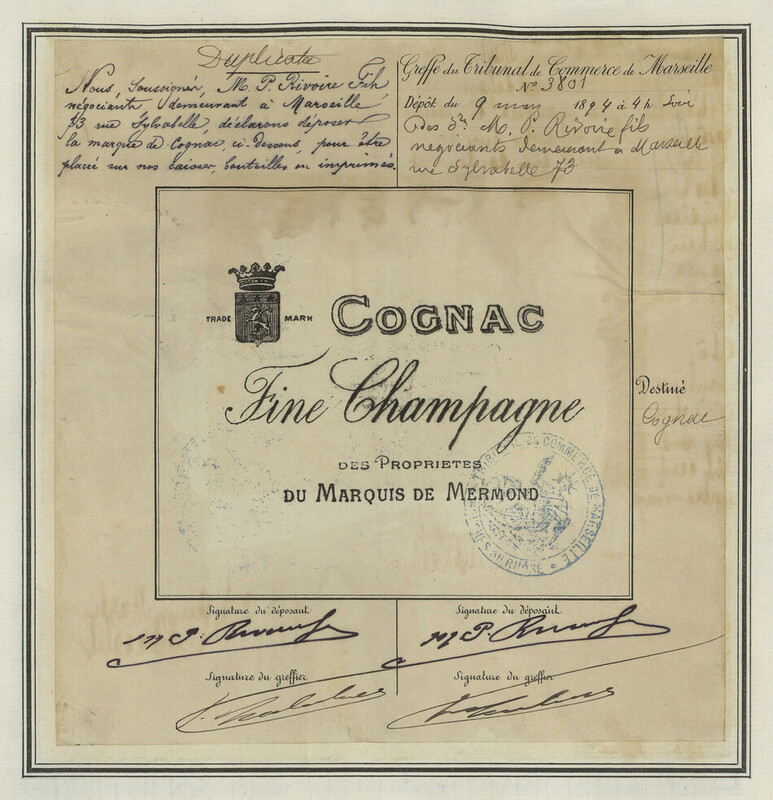 Duplicata
Nous, Soussignés, M. P. Rivoire Fils
négociants demeurant à Marseille
73 rue Sylvabelle, déclarons déposer
la marque de Cognac, ci-dessous, pour être
placée sur nos caisses, bouteilles ou imprimés.
Greffe du Tribunal de Commerce de Marseille
N° 3801
Dépôt du 9 mars 1894 à 4h Soir
Des Srs M. P. Rivoire fils
négociants demeurant à Marseille
rue Sylvabelle 73
TRADE MARK
COGNAC
Fine Champagne
DES PROPRIETES
DU MARQUIS DE MERMOND
TRIBUNAL DE COMMERCE DE MARSEILLE
Destiné
Cognac
Signature du déposant
M P. Rivoire fs
Signature du déposant
M P. Rivoire fs
Signature du greffier
Signature du greffier